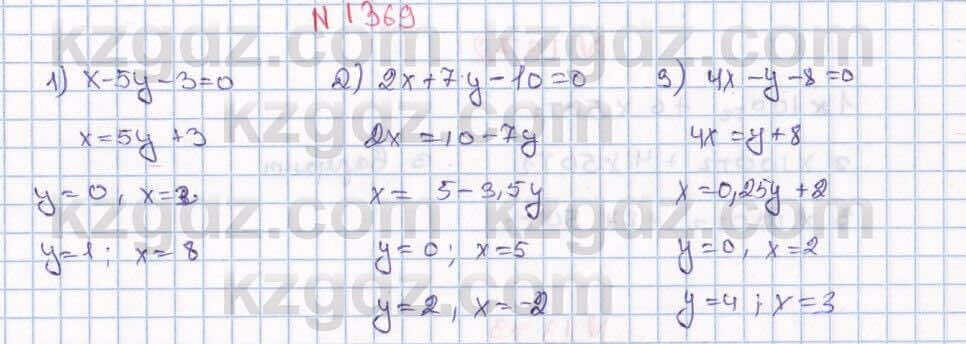 N 1369
1) x-5y-3=0
x=5y+3
y=0, x=3
y=1; x=8
2) 2x+7y-10=0
2x=10-7y
x= 5-3,5y
y=0; x=5
y=2, x=-2
3) 4x-y-8=0
4x=y+8
x=0,25y+2
y=0, x=2
y=4; x=3
kzgdz.com
kzgdz.com
kzgdz.com
kzgdz.com